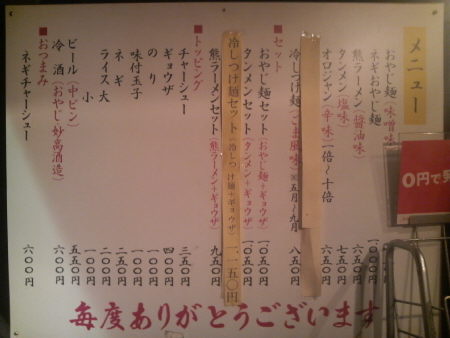 メニュー
おやじ麺(味噌味)
ネギおやじ麺
熊ラーメン(醤油味) 六五〇円
タンメン(塩味) 七五〇円
オロジャン(辛味)一倍〜十倍 六五〇円
冷しつけ麺(ごま風味)※五月〜九月 八五〇円
■セット
おやじ麺セット(おやじ麺+ギョウザ) 一〇五〇円
タンメンセット(タンメン+ギョウザ) 一〇五〇円
冷しつけ麺セット(冷しつけ麺+ギョウザ) 一、一五〇円
熊ラーメンセット(熊ラーメン+ギョウザ) 九五〇円
■トッピング
チャーシュー 三五〇円
ギョウザ 四〇〇円
のり 一〇〇円
味付玉子 一〇〇円
ネギ 二五〇円
ライス大 二〇〇円
小 一〇〇円
ビール(中ビン) 五五〇円
冷酒(おやじ妙高酒造) 六〇〇円
■おつまみ
ネギチャーシュー 六〇〇円
毎度ありがとうございます
0円で